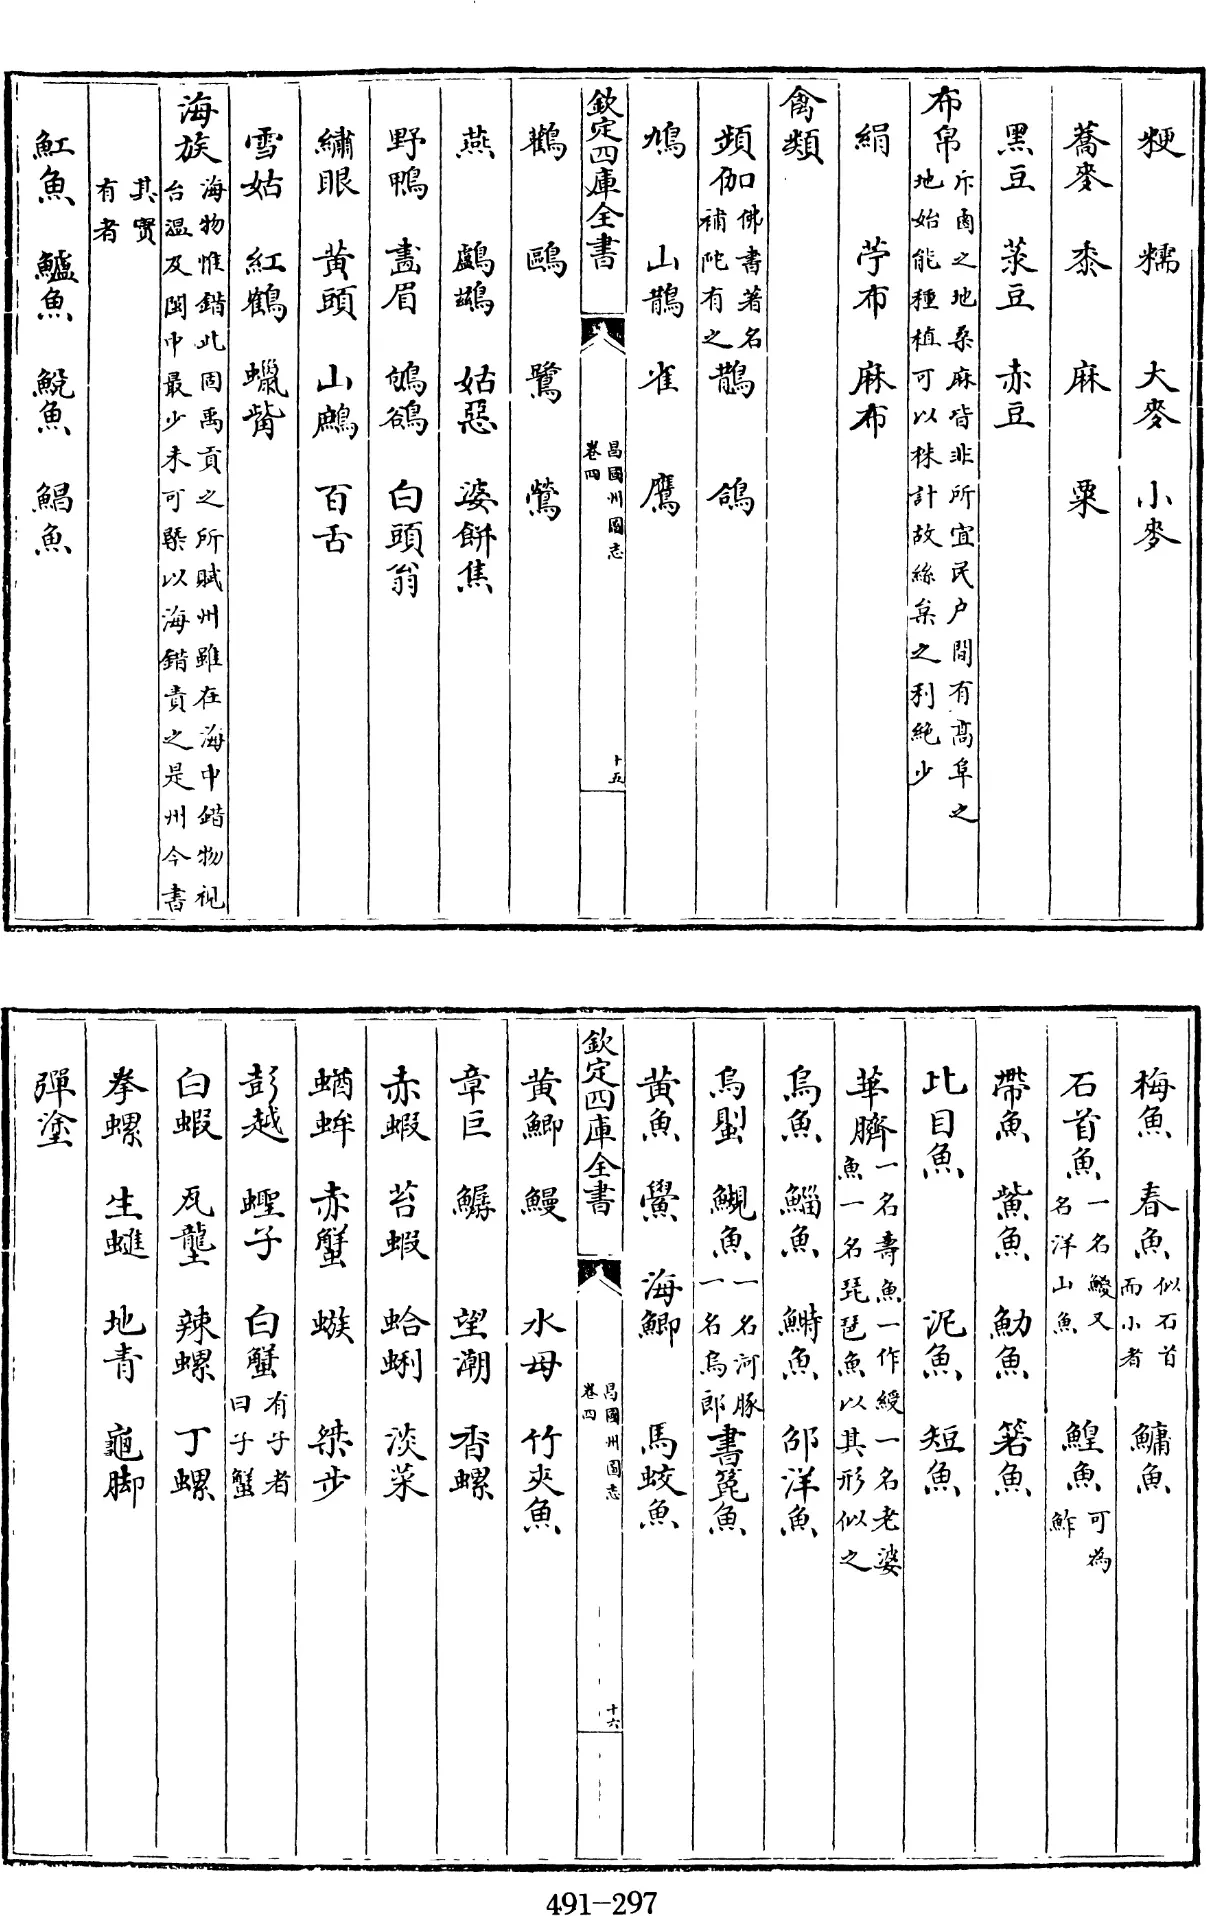 粳　糯　大麥　小麥
蕎麥　黍　麻　粟
黑豆　菉豆　赤豆
布帛斥鹵之地桑麻皆非所宜民户間有髙阜之地始能種植可以株計故絲枲之利絶少
絹　苧布　麻布
禽類
頻伽佛書著名補陀有之　鵲　鴿
鳩　山鵲　雀　鷹
欽定四庫全書
昌國州圖志
卷四
十五
鸛　鷗　鷺　鶯
燕　鸕鷀　姑惡　婆餅焦
野鴨　畵眉　鴝鵒　白頭翁
繡眼　黄頭　山鷓　百舌
雪姑　紅鶴　蠟觜
海族海物惟錯此固禹貢之所賦州雖在海中錯物視台温及閩中最少未可槩以海錯責之是州今書
其實有者
魟魚　鱸魚　鮸魚　鯧魚
梅魚　春魚似石首而小者　鱅魚
石首魚一名鯼又名洋山魚　鰉魚可為鮓
帶魚　鮆魚　魛魚　箬魚
比目魚　泥魚　短魚
華臍一名壽魚一作綬一名老婆魚一名琵琶魚以其形似之
烏魚　鯔魚　鰣魚　邵洋魚
烏鰂　鯢魚一名河豚一名烏郎　書篦魚
黄魚　鱟　海鯽　馬蛟魚
欽定四庫全書
昌國州圖志
卷四
十六
黄鯽　鰻　水母　竹夾魚
章巨　鱘　望潮　香螺
赤蝦　苔蝦　蛤蜊　淡菜
蝤蛑　赤蟹　蝬　桀步
彭越　蟶子　白蟹有子者曰子蟹
白蝦　瓦壟　辣螺　丁螺
拳螺　生䗯　地青　龜脚
彈塗
491-297